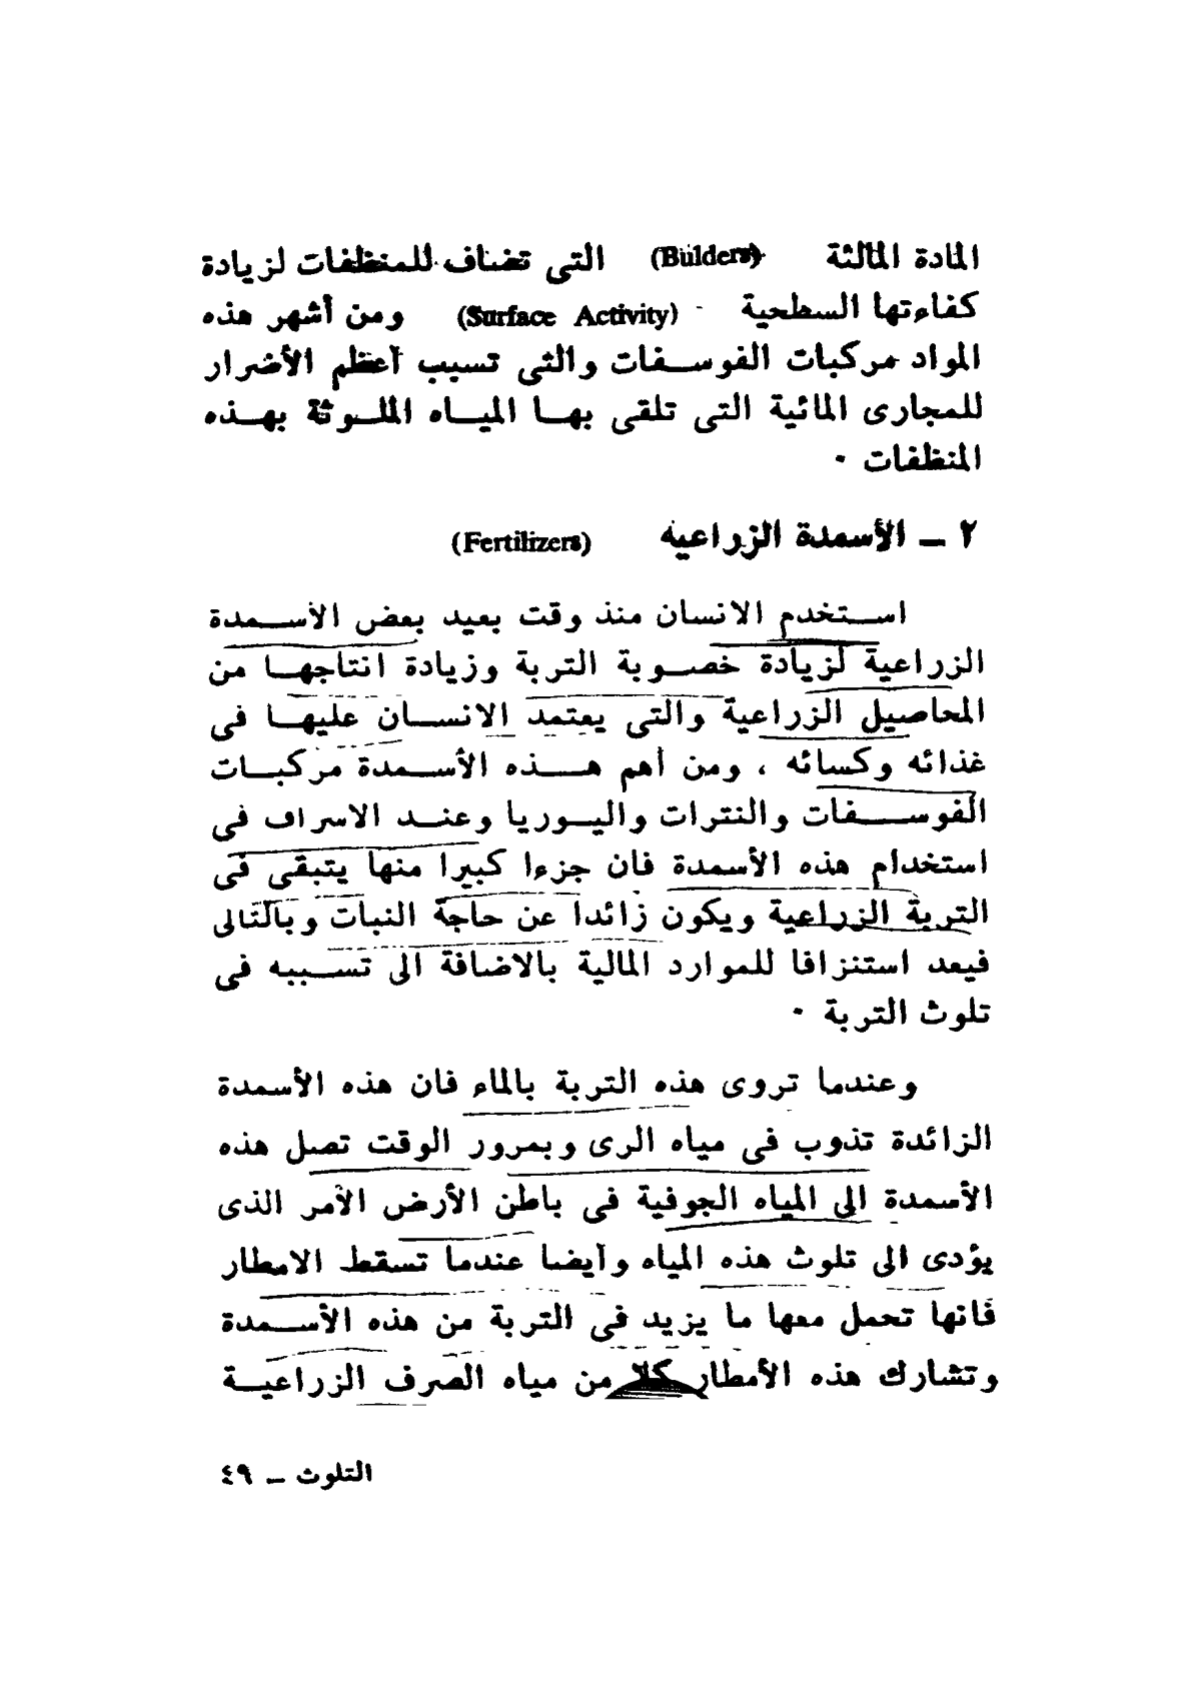 المادة المالئة (Builders) التى تضاف للمنظفات لزيادة
كفاءتها السطحية (Surface Activity) ومن أشهر هذه
المواد مركبات الفوسفات والتى تسبب أعظم الأضرار
للمجارى المائية التى تلقى بها المياه الملوثة بهذه
المنظفات .
٢ ـ الأسمدة الزراعيه (Fertilizers)
استخدم الانسان منذ وقت بعيد بعض الأسمدة
الزراعية لزيادة خصوبة التربة وزيادة انتاجها من
المحاصيل الزراعية والتى يعتمد الانسان عليها فى
غذائه وكسائه ، ومن أهم هذه الأسمدة مركبات
الفوسفات والنترات واليوريا وعند الاسراف فى
استخدام هذه الأسمدة فان جزءا كبيرا منها يتبقى فى
التربة الزراعية ويكون زائدا عن حاجة النبات وبالتالى
فيعد استنزافا للموارد المالية بالاضافة الى تسببه فى
تلوث التربة .
وعندما تروى هذه التربة بالماء فان هذه الأسمدة
الزائدة تذوب فى مياه الرى وبمرور الوقت تصل هذه
الأسمدة الى المياه الجوفية فى باطن الأرض الأمر الذى
يؤدى الى تلوث هذه المياه وأيضا عندما تسقط الامطار
فانها تحمل معها ما يزيد فى التربة من هذه الأسمدة
وتشارك هذه الأمطار كلا من مياه الصرف الزراعية
التلوث ـ ٤٩